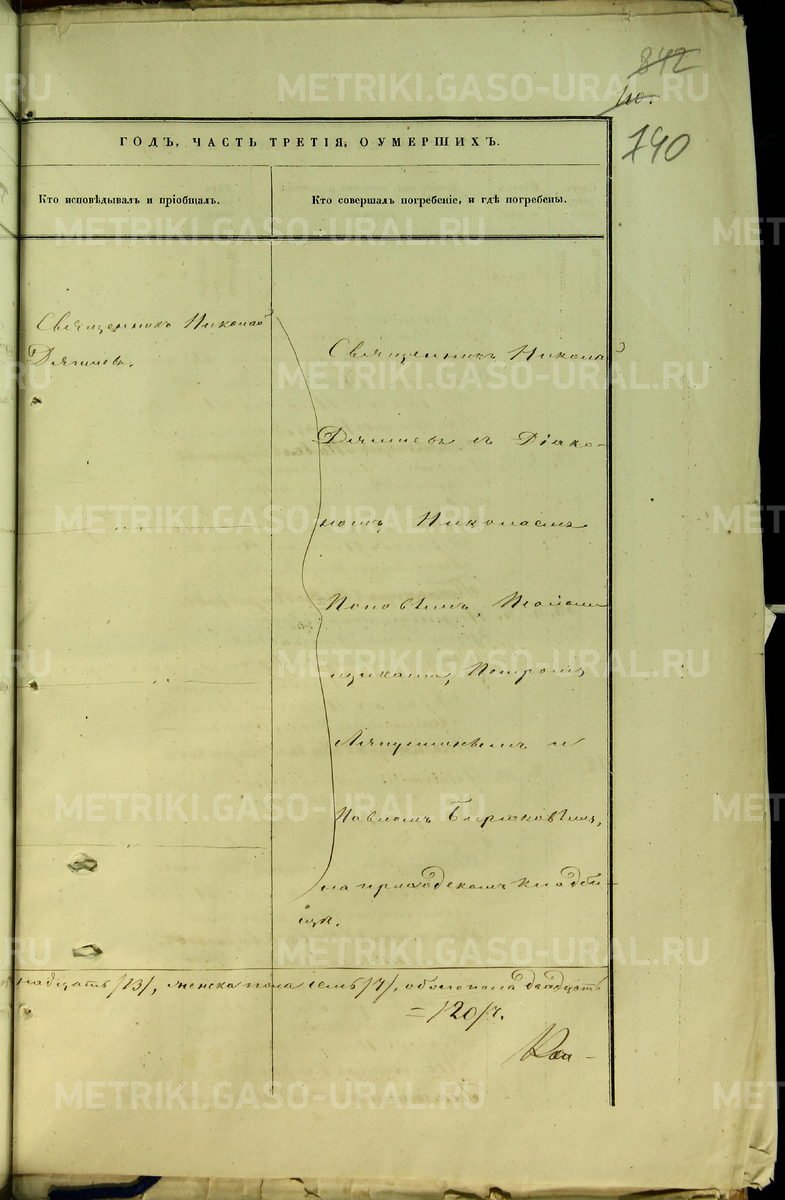 842
110.
740
ГОДЪ, ЧАСТЬ ТРЕТІЯ, О УМЕРШИХЪ.
Кто исповѣдывалъ и пріобщалъ.
Кто совершалъ погребеніе, и гдѣ погребены.
Священникъ Николай
Священникъ Николай
съ Діако-
номъ Николаемъ
Поповымъ, Псалом
щиками, Петромъ
и
Павломъ Бирюковымъ,
на приходскомъ кладби-
щѣ.
надцать /13/, женска пола семь /7/, обоего пола двадцать
= /20/ ч.
METRIKI.GASO-URAL.RU